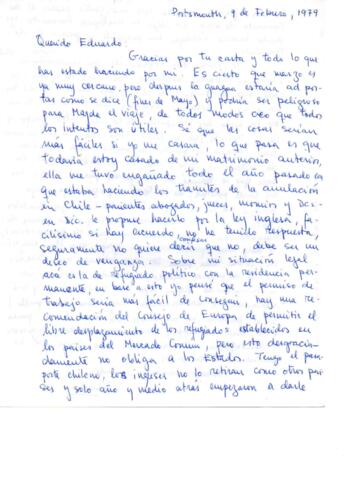 Portsmouth, 9 de Febrero, 1979
Querido Eduardo:
Gracias por tu carta y todo lo que
has estado haciendo por mi. Es cierto que marzo es
ya muy cercano, pero después la guagua estaría ad por-
tas como se dice (fines de Mayo) y podría ser peligroso
para Magda el viaje, de todos modos creo que todos
los intentos son útiles. Sé que las cosas serían
más fáciles si yo me casara, lo que pasa es que
todavía estoy casado de mi matrimonio anterior,
ella me tuvo engañado todo el año pasado en que
estaba haciendo los trámites de la anulación
en Chile - parientes abogados, jueces, monios y
en Dic. le propuse hacerlo por la ley inglesa, fa-
cilísimo si hay acuerdo, no he tenido respuesta,
seguramente no quiere decir que no, debe ser un
deseo de venganza. Sobre mi situación legal
acá es la de refugiado político con la residencia per-
manente, en base a esto yo pensé que el permiso de
trabajo sería más fácil de conseguir, hay una re-
comendación del Consejo de Europa de permitir el
libre desplazamiento de los refugiados establecidos en
los países del Mercado Común, pero esto desgracia-
damente no obliga a los Estados. Tengo el pasa-
porte chileno, los ingleses no lo retiran como otros paí-
ses y solo año y medio atrás empezaron a darle